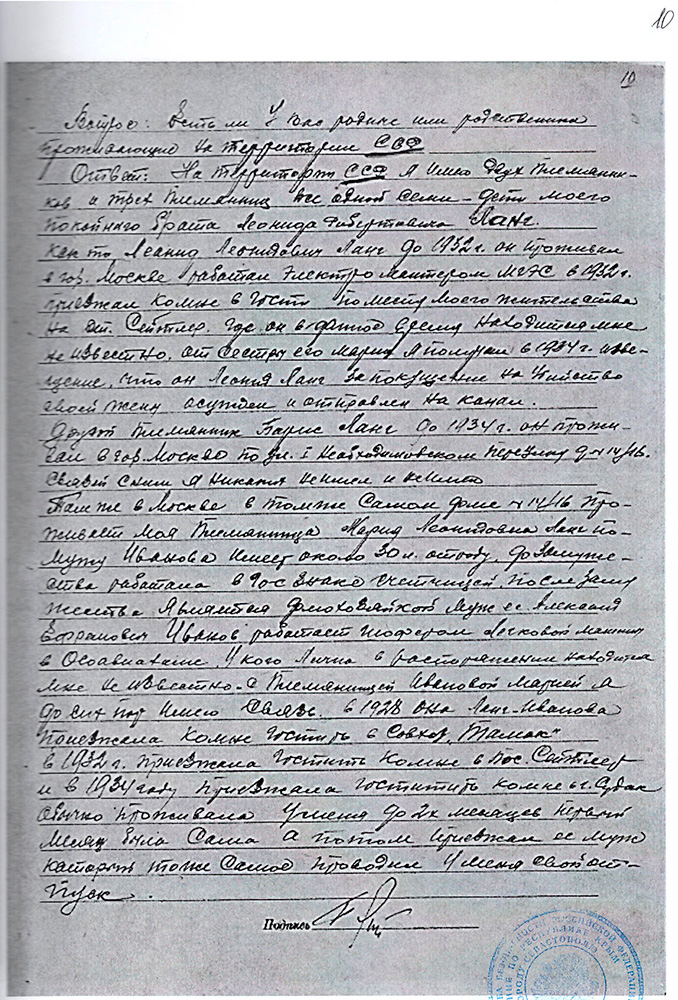 10
10
Вопрос: Есть ли у вас родные или родственники
проживающие на территории СССР
Ответ: На территории СССР я имею двух племянни-
ков и трех племянниц все одной семьи – дети моего
покойного брата Леонида Робертовича Ланг.
как то Леонид Леонидович Ланг до 1932 г. он проживал
в гор. Москве работал электромантером МГЭС в 1932 г.
приезжал комне в гости по месту моего жительства
на ст. Сейтлер. Где он в данное время находится мне
не известно, от сестры его Марии я получил в 1934 г. изве-
щение, что он Леонид Ланг за покушение на убийство
своей жены осужден и отправлен на канал.
Другой племянник Борис Ланг до 1934 г. он прожи-
вал в гор. Москво по ул. I переулку д № 14/16.
Связей с ним я никаких не имел и не имею
Там же в Москве в том же самом доме № 14/16 про-
живает моя племянница Мария Леонидовна Ланг по-
мужу Иванова имеет около 30 л. отроду, до замуже-
ства работала в Госзнаке счетчицей, после заму
жества является домохозяйкой муж ее Алексей
Иванов работает шофером легковой машины
в Осоавиахиме. У кого лично в распоряжении находится
мне не известно. С племянницей Ивановой Марией я
до сих пор имею связь. в 1928 она Ланг-Иванова
приезжала комне гостить в Совхоз "Тамак"
в 1932 г. приезжала гостить комне в пос. Сейтлер
и в 1934 году приезжала гостить комне в г. Судак
обычно проживала у меня до 2х месяцев первый
месяц была сама а потом приезжал ее муж
каторый тоже самое проводил у меня свой от-
пуск.
Подпись
БЕЗОПАСНОСТИ РОССИЙСКОЙ ФЕДЕРАЦИИ
ПО РЕСПУБЛИКЕ КРЫМ
ГОРОДУ СЕВАСТОПОЛЮ